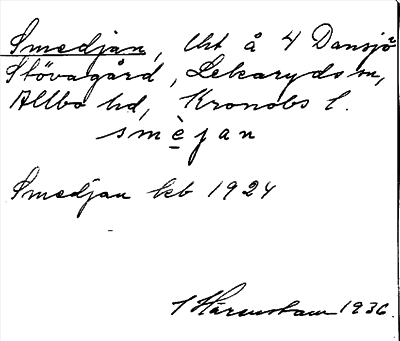 Smedjan, lht å 4 Dansjö
Stövagård, Lekaryds sn,
Allbo hd, Kronobs l.
smèjan
Smedjan kb 1924
1936